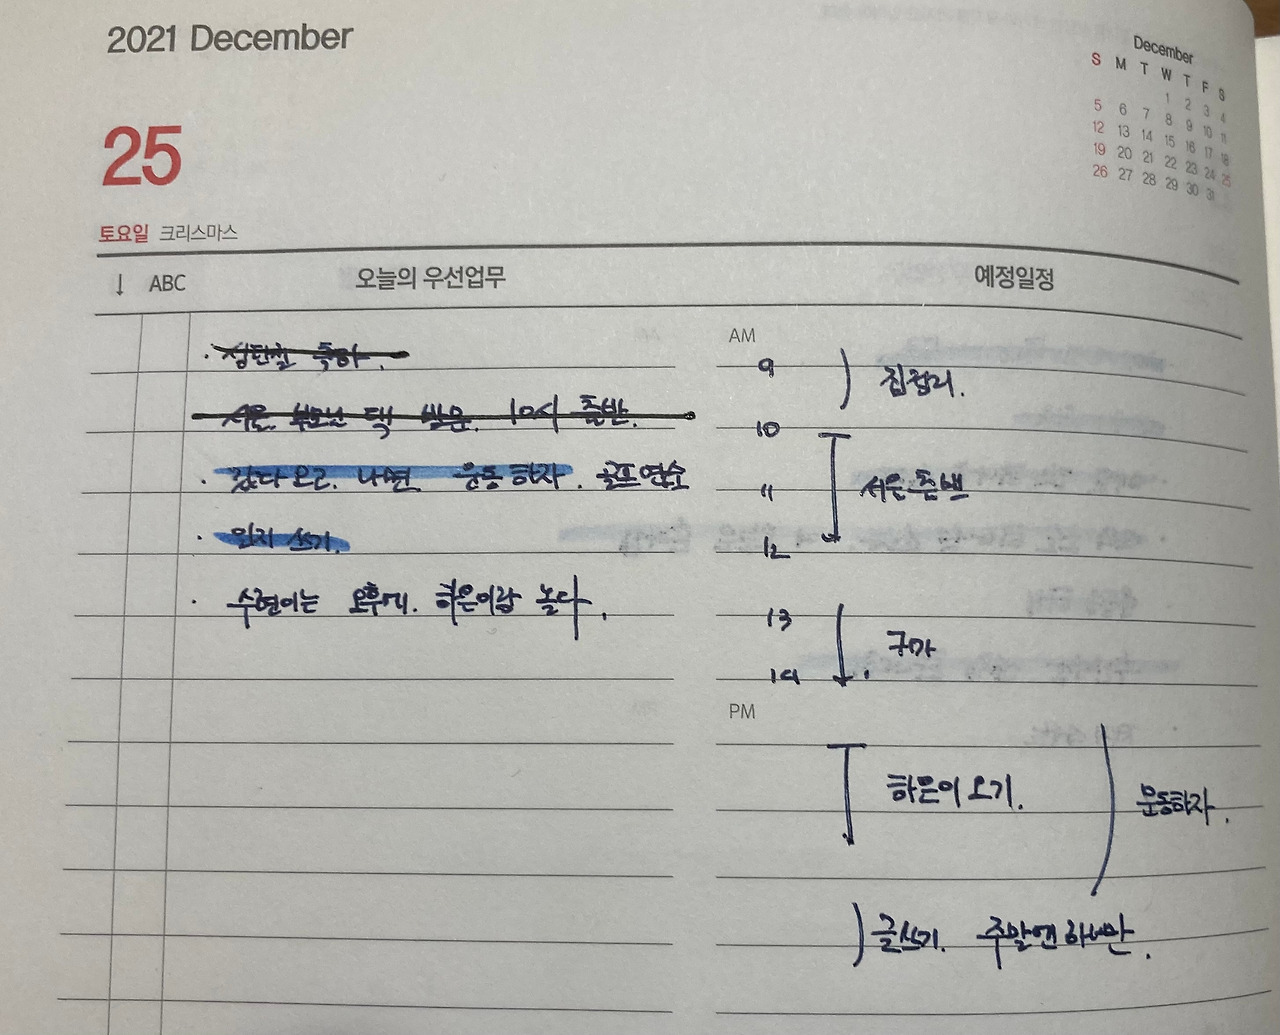 2021 December
25
토요일 크리스마스
December
S M T W T F S
1 2 3 4
5 6 7 8 9 10 11
12 13 14 15 16 17 18
19 20 21 22 23 24 25
26 27 28 29 30 31
↓ ABC 오늘의 우선업무
· 성탄절 축하.
서울. 부모님 댁 방문. 10시 출발.
· 갔다오고. 나면 운동하자. 골프연습
· 일지 쓰기.
· 수현이는 오후에. 하은이랑 놀다.
예정일정
AM
9 집정리.
10
11 서울출발
12
13 구마
14
PM
하은이 오기. 운동하자.
글쓰기. 주말엔 하나만.